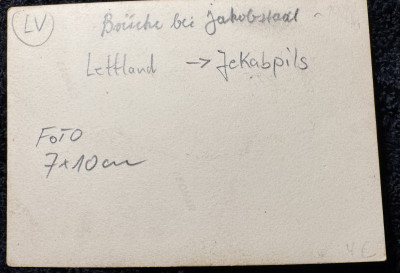 LV
Brücke bei Jakobstadt
Lettland → Jekabpils
FOTO
7x10cm
4€